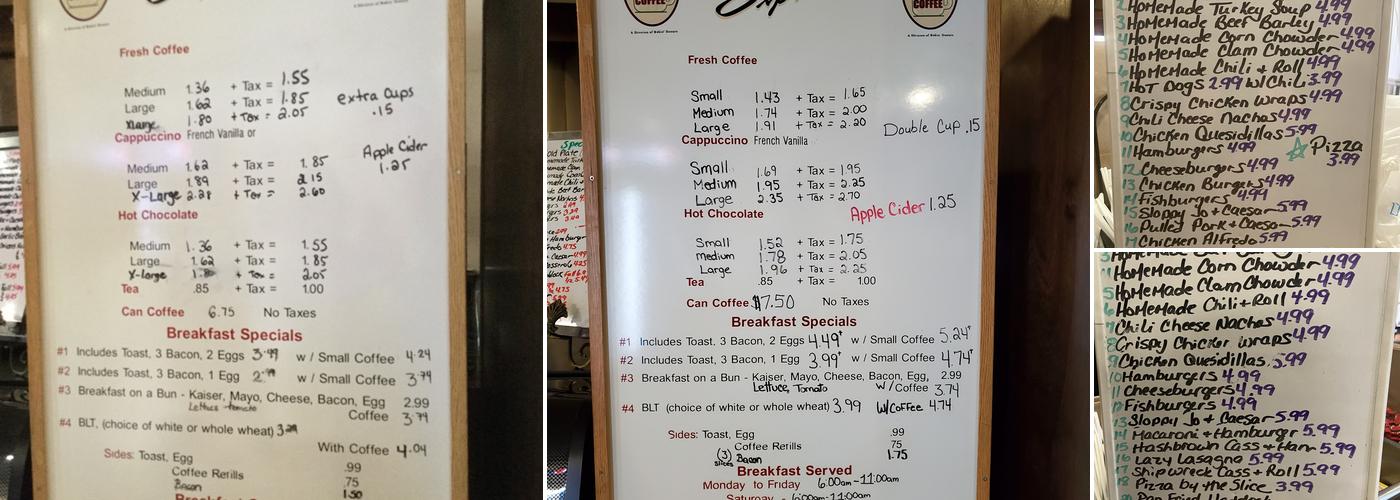 COFFEE
A Division of Baker Donuts
Fresh Coffee
Medium 1.36 + Tax = 1.55
Large 1.62 + Tax = 1.85
Xlarge 1.80 + Tax = 2.05
extra cups .15
Cappuccino French Vanilla or
Apple Cider 1.25
Medium 1.62 + Tax = 1.85
Large 1.89 + Tax = 2.15
X-Large 2.28 + Tax = 2.60
Hot Chocolate
Medium 1.36 + Tax = 1.55
Large 1.62 + Tax = 1.85
X-large + Tax = 2.05
Tea .85 + Tax = 1.00
Can Coffee 6.75 No Taxes
Breakfast Specials
#1 Includes Toast, 3 Bacon, 2 Eggs 3.49 w / Small Coffee 4.24
#2 Includes Toast, 3 Bacon, 1 Egg 2.99 w / Small Coffee 3.74
#3 Breakfast on a Bun - Kaiser, Mayo, Cheese, Bacon, Egg 2.99
Lettuce tomato Coffee 3.74
#4 BLT, (choice of white or whole wheat) 3.29
With Coffee 4.04
Sides: Toast, Egg .99
Coffee Refills .75
Bacon 1.50
COFFEE
Fresh Coffee
Small 1.43 + Tax = 1.65
Medium 1.74 + Tax = 2.00
Large 1.91 + Tax = 2.20
Double Cup .15
Cappuccino French Vanilla
Small 1.69 + Tax = 1.95
Medium 1.95 + Tax = 2.25
Large 2.35 + Tax = 2.70
Hot Chocolate
Apple Cider 1.25
Small 1.52 + Tax = 1.75
Medium 1.78 + Tax = 2.05
Large 1.96 + Tax = 2.25
Tea .85 + Tax = 1.00
Can Coffee $7.50 No Taxes
Breakfast Specials
#1 Includes Toast, 3 Bacon, 2 Eggs 4.49+ w / Small Coffee 5.24+
#2 Includes Toast, 3 Bacon, 1 Egg 3.99+ w / Small Coffee 4.74+
#3 Breakfast on a Bun - Kaiser, Mayo, Cheese, Bacon, Egg, 2.99
Lettuce, Tomato w/Coffee 3.74
#4 BLT (choice of white or whole wheat) 3.99 w/Coffee 4.74
Sides: Toast, Egg .99
Coffee Refills .75
(3) slices Bacon 1.75
Breakfast Served
Monday to Friday 6:00am-11:00am
Saturday - 6:00am-11:00am
2 HomeMade Turkey Soup 4.99
3 HomeMade Beef Barley 4.99
4 HomeMade Corn Chowder 4.99
5 HomeMade Clam Chowder 4.99
6 HomeMade Chili + Roll 4.99
7 Hot Dogs 2.99 w/Chili 3.99
8 Crispy Chicken Wraps 4.99
9 Chili Cheese Nachos 4.99
10 Chicken Quesidillas 5.99
11 Hamburgers 4.99
Pizza 3.99
12 Cheeseburgers 4.99
13 Chicken Burgers 4.99
14 Fishburgers 4.99
15 Sloppy Jo + Caesar 5.99
16 Pulled Pork + Caesar 5.99
17 Chicken Alfredo 5.99
HomeMade Corn Chowder 4.99
5 HomeMade Clam Chowder 4.99
6 HomeMade Chili + Roll 4.99
7 Chili Cheese Nachos 4.99
8 Crispy Chicken Wraps 4.99
9 Chicken Quesidillas 5.99
10 Hamburgers 4.99
11 Cheeseburgers 4.99
12 Fishburgers 4.99
13 Sloppy Jo + Caesar 5.99
14 Macaroni + Hamburger 5.99
15 Hashbrown Cass + Ham 5.99
16 Lazy Lasagna 5.99
17 Shipwreck Cass + Roll 5.99
18 Pizza by the Slice 3.99
Pan Fried